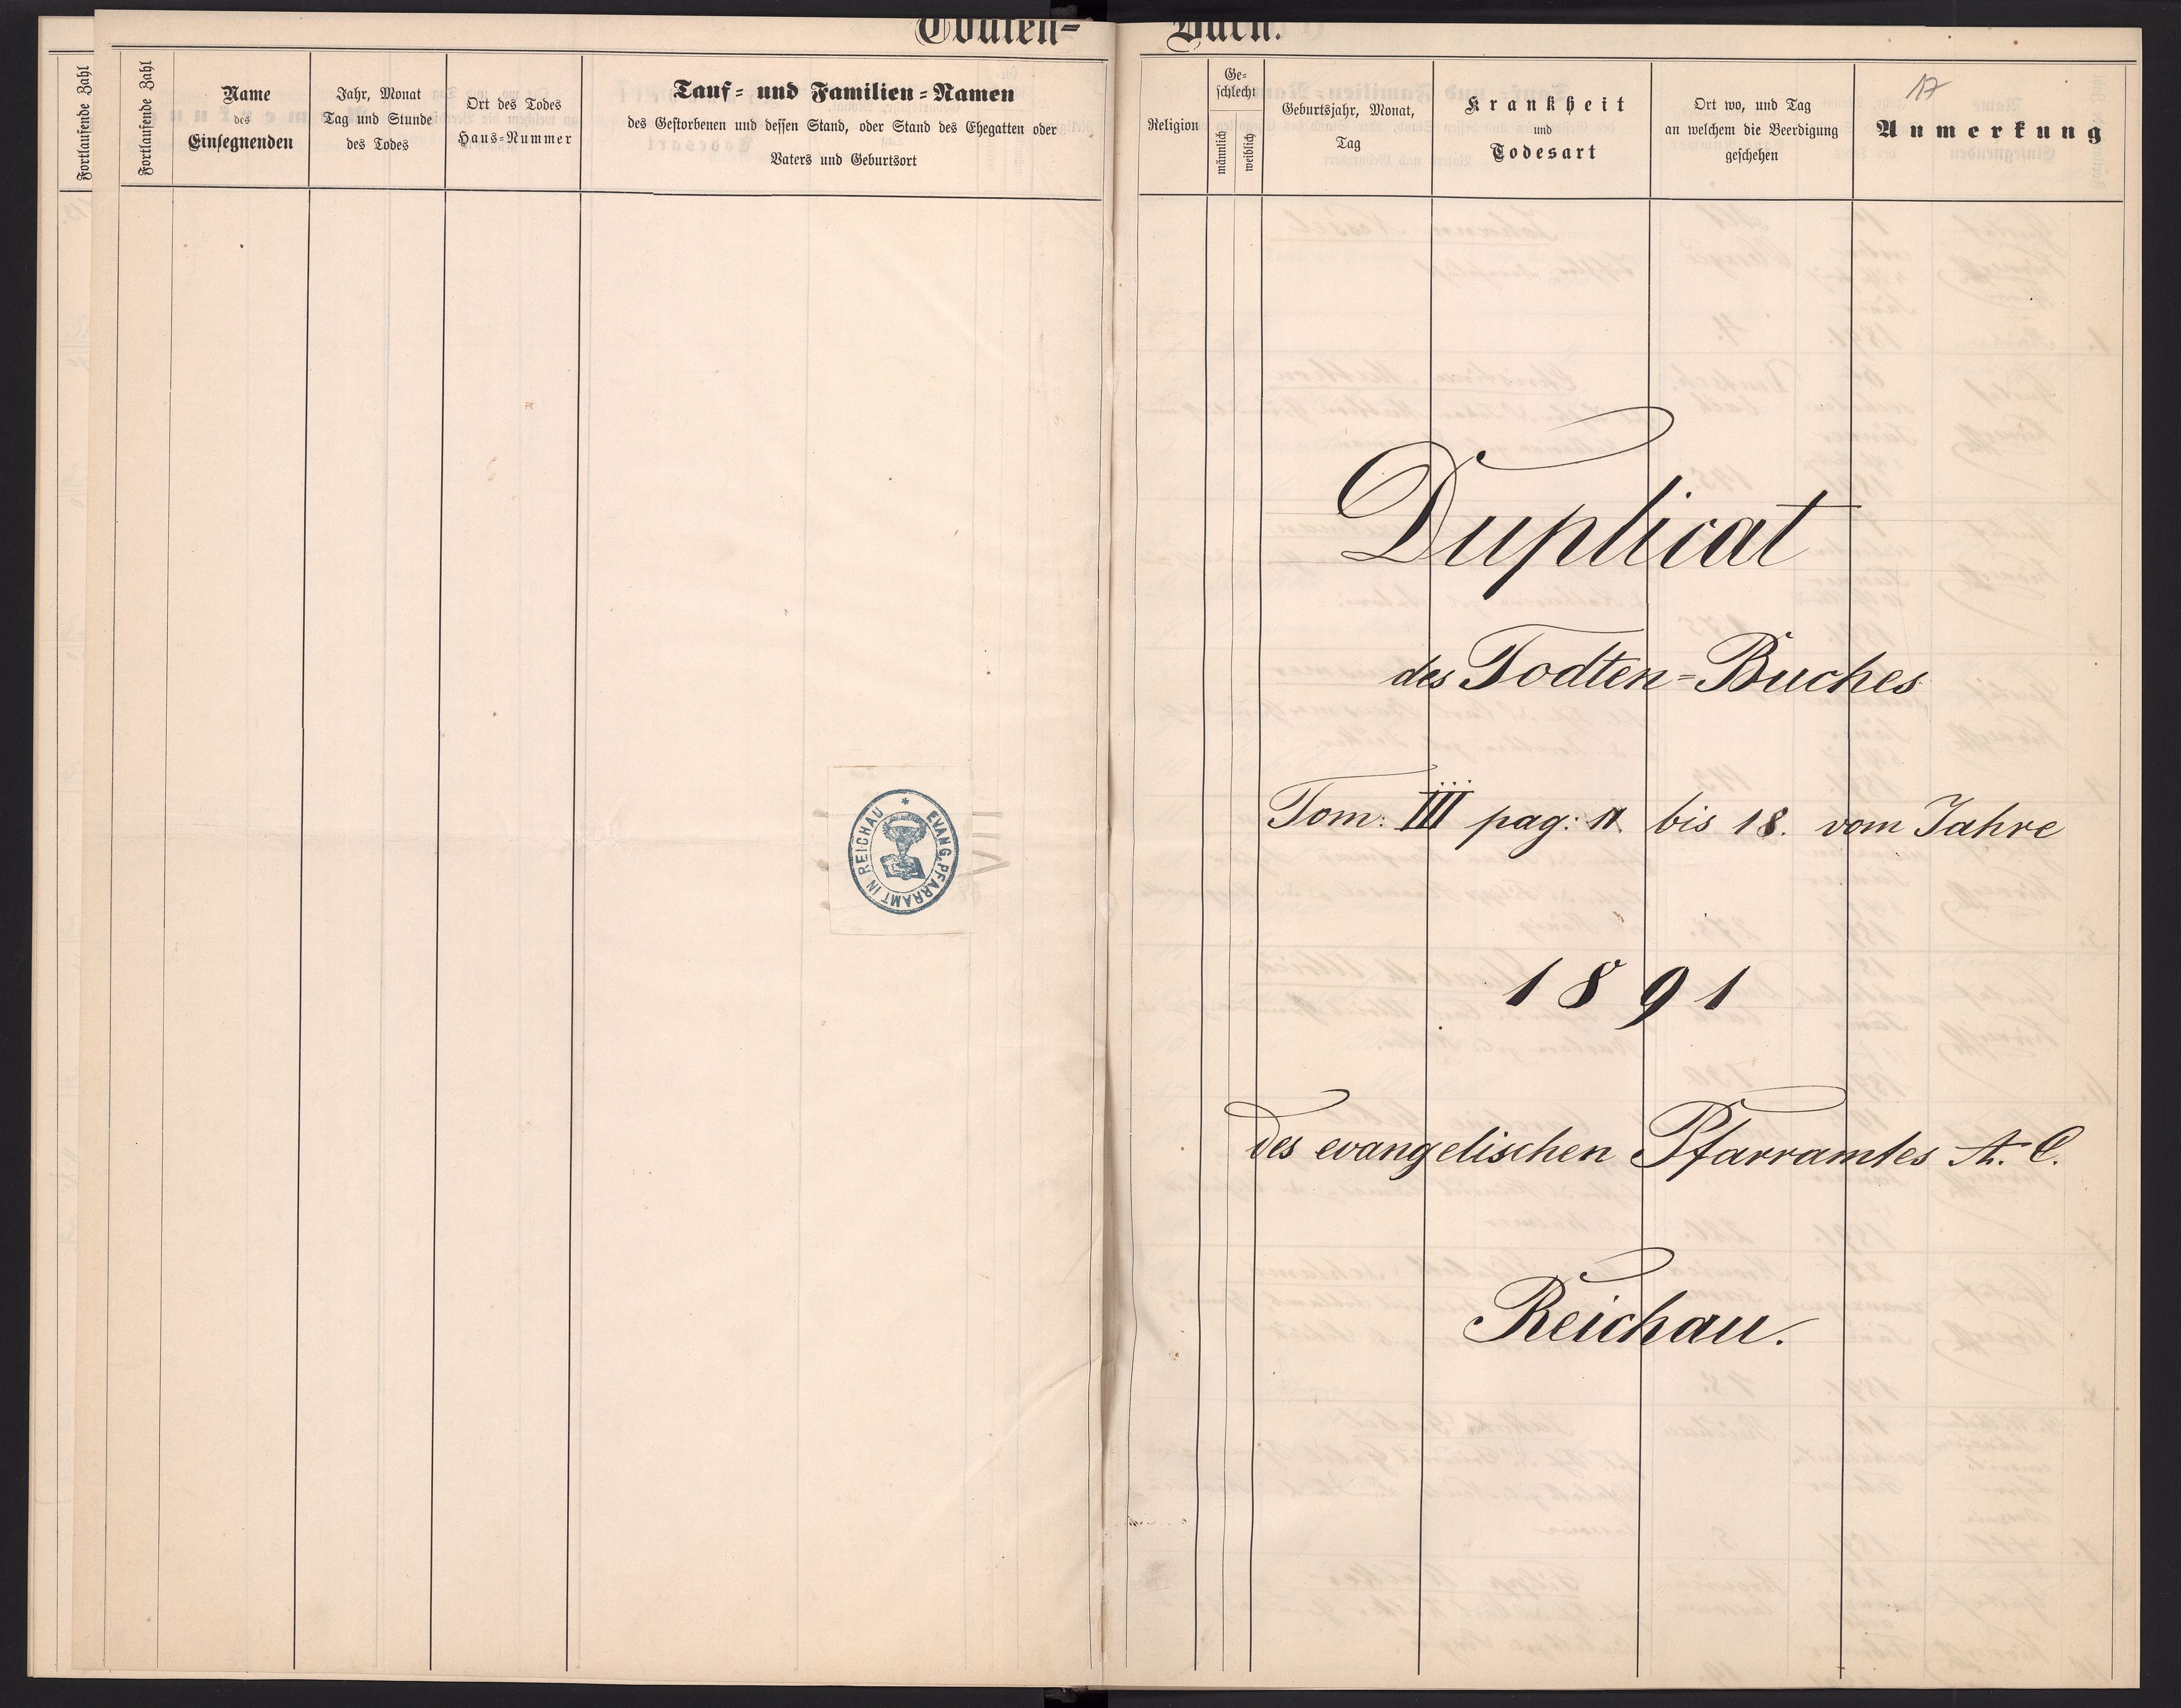 Todten-Buch.
Fortlaufende Zahl
Fortlaufende Zahl
Name
des
Einsegnenden
Jahr, Monat
Tag und Stunde
des Todes
Ort des Todes
Haus-Nummer
Tauf- und Familien-Namen
des Gestorbenen und dessen Stand, oder Stand des Ehegatten oder
Vaters und Geburtsort
EVANG. PFARRAMT IN REICHAU *
Religion
Ge-
schlecht
männlich
weiblich
Geburtsjahr, Monat,
Tag
Krankheit
und
Todesart
Ort wo, und Tag
an welchem die Beerdigung
geschehen
17
Anmerkung
Duplicat
des Todten-Buches
Tom: III pag: 11 bis 18. vom Jahre
1891
des evangelischen Pfarramtes A. C.
Reichau.